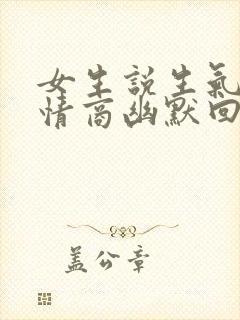 女生説生氣
情商幽默回
盖公章